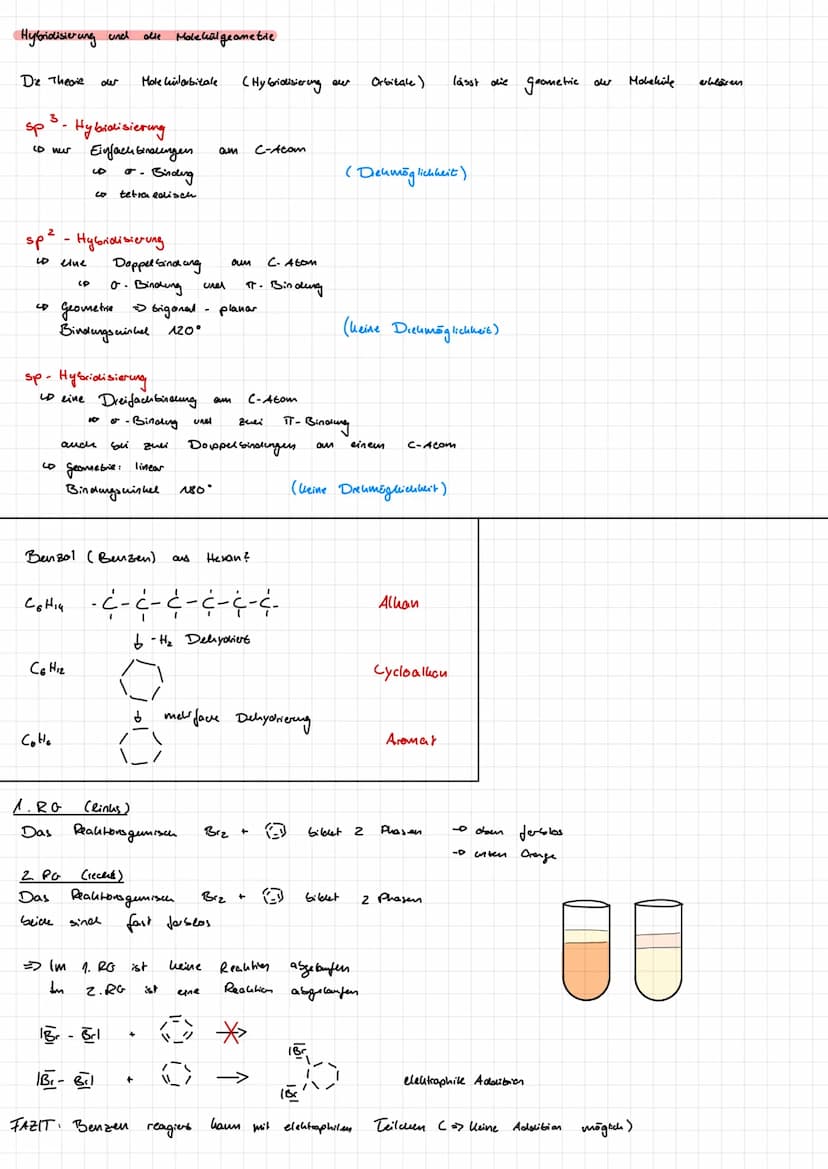 Hybridisierung und die Molekülgeometrie
Die Theorie der Molekülorbitale (Hybridisierung der Orbitale) lässt die Geometrie der Moleküle erklären
sp³ - Hybridisierung
↳ nur Einfachbindungen am C-Atom
↳ σ - Bindung (Drehmöglichkeit)
↳ tetraedrisch
sp² - Hybridisierung
↳ eine Doppelbindung am C-Atom
↳ σ - Bindung und π - Bindung
↳ Geometrie => trigonal - planar
Bindungswinkel 120° (keine Drehmöglichkeit)
sp - Hybridisierung
↳ eine Dreifachbindung am C-Atom
↳ σ - Bindung und zwei π - Bindung
auch bei zwei Doppelbindungen an einem C-Atom
↳ Geometrie: linear
Bindungswinkel 180° (keine Drehmöglichkeit)
Benzol (Benzen) aus Hexan?
C6H14 -C-C-C-C-C-C- Alkan
↓ -H2 Dehydriert
C6H12 Cycloalkan
↓ mehrfache Dehydrierung
C6H6 Aromat
1. RG (links)
Das Reaktionsgemisch Br2 + bildet 2 Phasen → oben farblos
→ unten Orange
2 RG (rechts)
Das Reaktionsgemisch Br2 + bildet 2 Phasen
beide sind fast farblos
=> Im 1. RG ist keine Reaktion abgelaufen
Im 2. RG ist eine Reaktion abgelaufen
|Br - Br| + →
|Br
|Br - Br| + → elektrophile Addition
|Br
FAZIT: Benzen reagiert kaum mit elektrophilen Teilchen (=> keine Addition möglich)